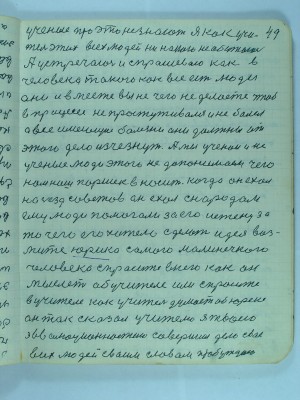 ученые про это не знают Я как учи- 49
тел этих всех людей ни на кого не обижаюсь
А устречаюсь и спрашеваю как в
человека такого как все ест людей
они и вместе вы не чего не делаете чтоб
в процессе не простуживался и не болел
а все имеющие болезни они должны от
этого дела изчезнут. А мы ученые и не
ученые люди этого не допонимаем чего
нам наш поршек в носит. когда он ехал
на год советов он ехал с народам
ему люди помогали за его истену за
то чего его хатело сделат идея воз-
мите юрико самого малинечкого
человека спрасите в него как он
мыслет об учителе или спросите
в учителе как учител думает об юрене
он так сказал учителю я твоего
эвоалюционностю совершим дело свое
всих людей своим словам пробуждаю